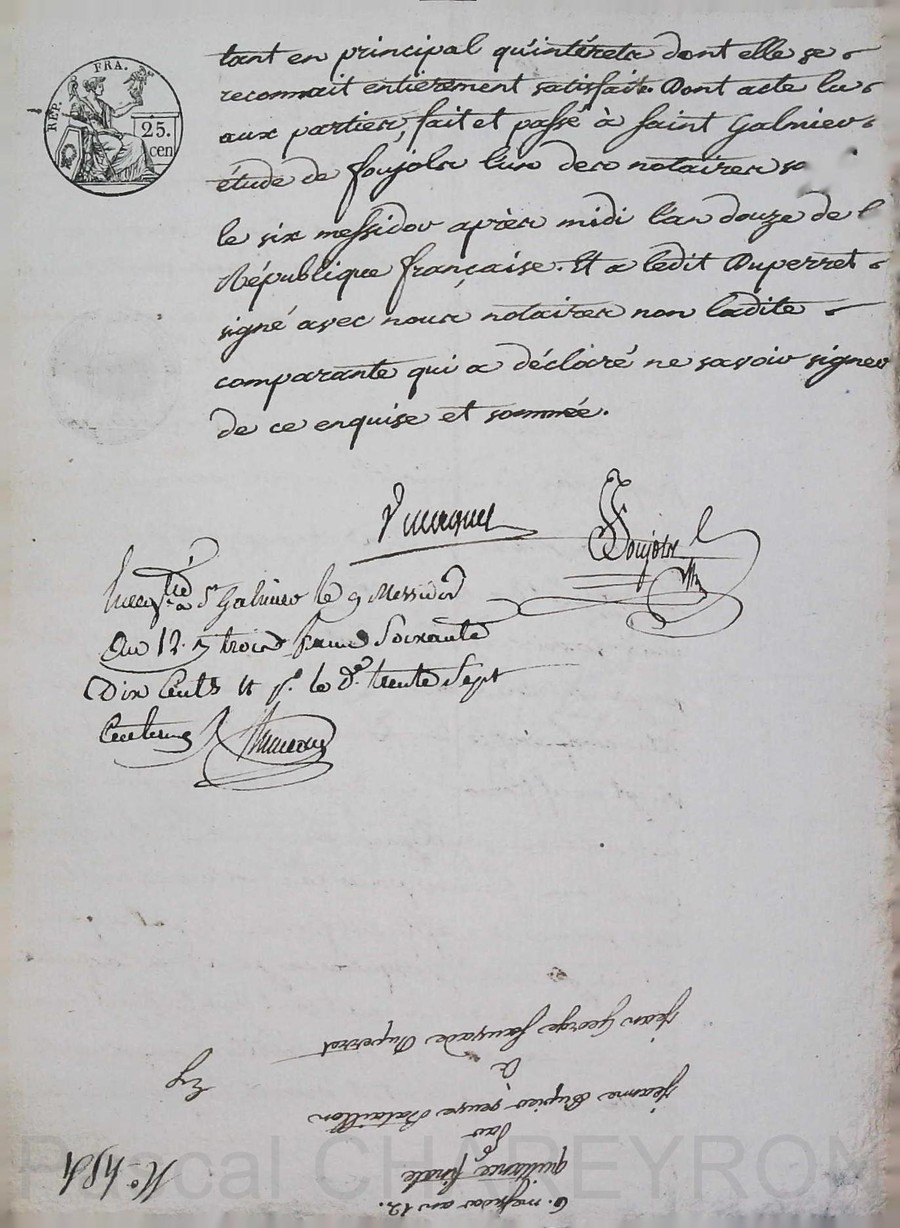 REP. FRA.
25.
cen
tant en principal qu'intérets dont elle se
reconnait entièrement satisfaite. Dont acte lu
aux parties, fait et passé à Saint Galmier
étude de Foujols l'un des notaires
le six messidor après midi l'an douze de l
République française. Et a ledit Duperret
signé avec nous notaires non ladite
comparante qui a déclaré ne savoir signer
de ce enquise et sommée.
Foujols
à St Galmier le 9 Messidor
an 12. trois soixante
Dix Cents le trente Sept
Centimes
6. messidor an 12.
quitance finale
par
jeanne veuve Bataillon
à
jean George Duperret
Pascal CHAREYRON